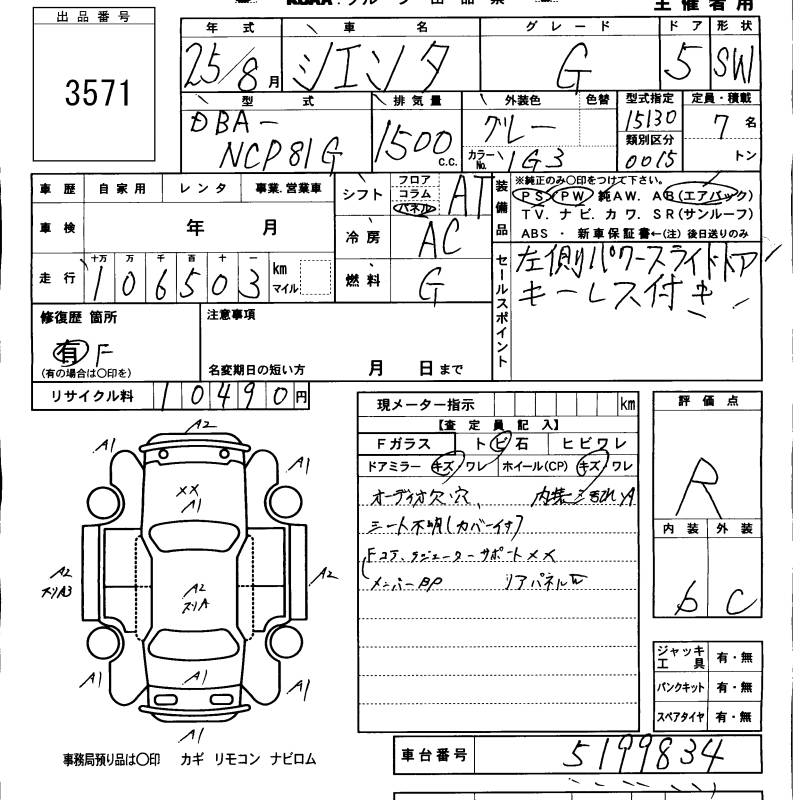 主催者用
出品番号
3571
年式 車名 グレード ドア 形状
25/8月 シエンタ G 5 SW
型式 排気量 外装色 色替 型式指定 定員・積載
DBA-
NCP81G 1500 c.c. グレー 15130 7名
類別区分
カラーNo. 1G3 0015 トン
車歴 自家用 レンタ 事業.営業車
車検 年 月
走行 十万 万 千 百 十 一
106503 km マイル
シフト フロア コラム パネル AT
冷房 AC
燃料 G
装備品
※純正のみ○印をつけて下さい。
PS PW 純AW. AB(エアバック)
TV. ナビ. カワ. SR(サンルーフ)
ABS ・ 新車保証書←(注) 後日送りのみ
セールスポイント
左側パワースライドドア
キーレス付き
修復歴 箇所
有 F
(有の場合は○印を)
注意事項
名変期日の短い方 月 日まで
リサイクル料 10490円
現メーター指示 km
【査定員記入】
Fガラス トビ石 ヒビワレ
ドアミラー キズ・ワレ ホイール(CP) キズ・ワレ
オーディオ欠.穴 内装シミ汚れ.A
シート不明(カバー付)
Fコア、ラジエーターサポートXX
メンバーBP リアパネルW
評価点
R
内装 外装
b C
ジャッキ 工具 有・無
パンクキット 有・無
スペアタイヤ 有・無
A2
A1 A1
XX
A1
A2 A2
ズリA3
A2
ズリA
A1 A1 A1
A1
事務局預り品は○印 カギ リモコン ナビロム
車台番号 5199834